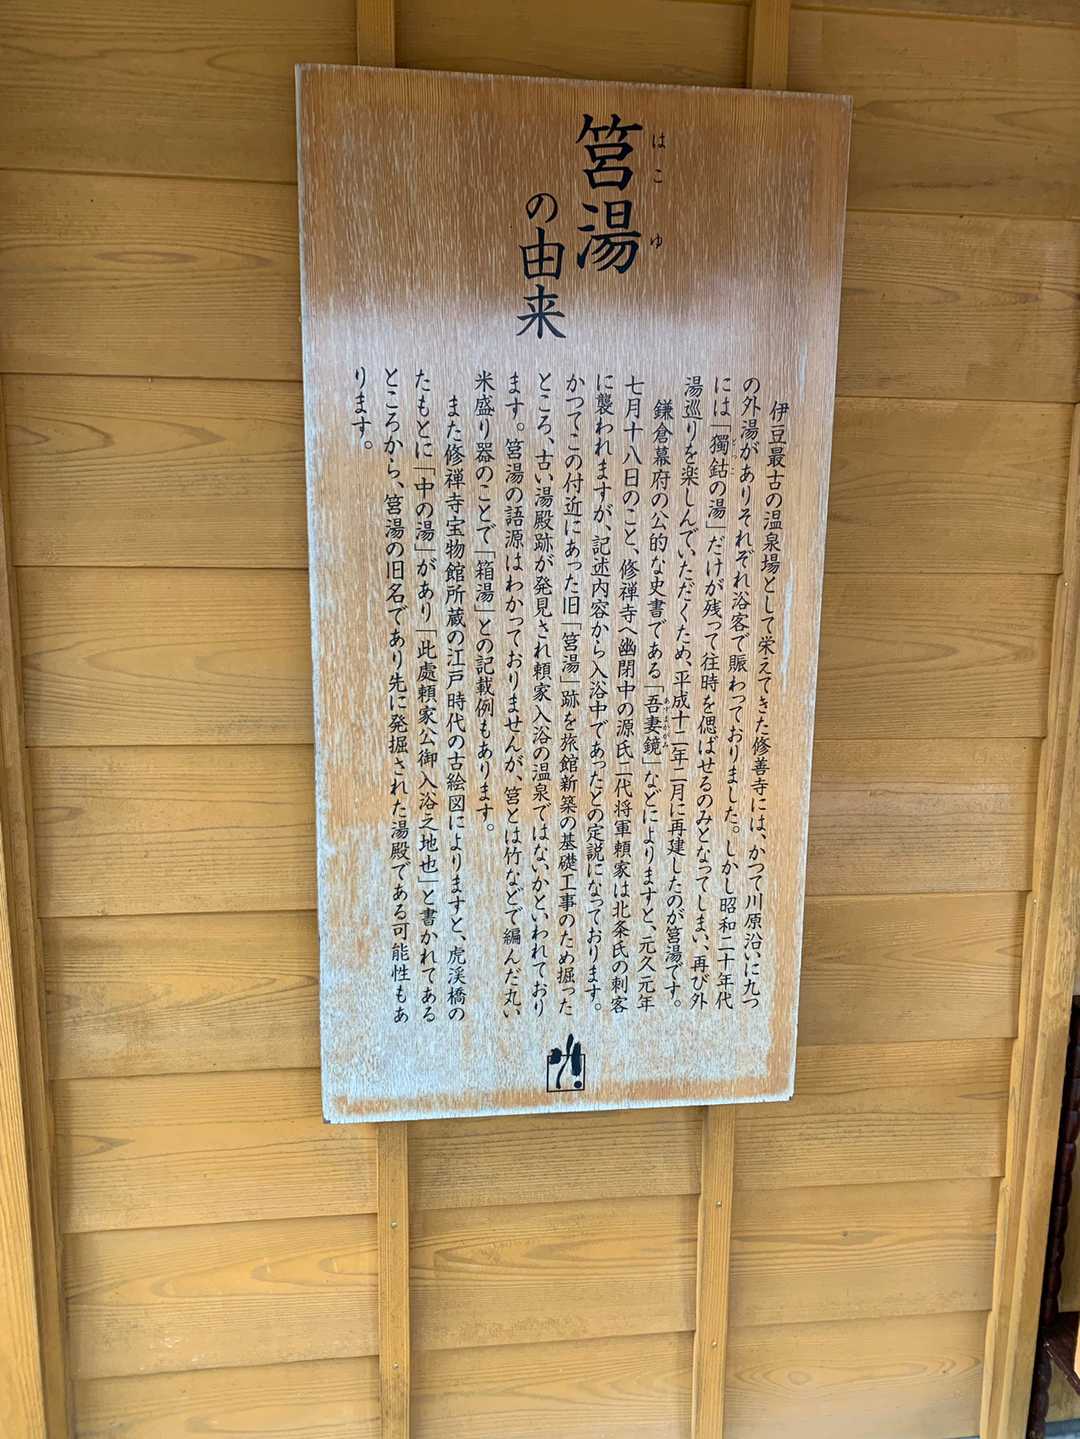 筥湯
はこゆ
の由来
伊豆最古の温泉場として栄えてきた修善寺には、かつて川原沿いに九つ
の外湯がありそれぞれ浴客で賑わっておりました。しかし昭和二十年代
には「獨鈷の湯」だけが残って往時を偲ばせるのみとなってしまい、再び外
湯巡りを楽しんでいただくため、平成十二年二月に再建したのが筥湯です。
鎌倉幕府の公的な史書である「吾妻鏡」などによりますと、元久元年
あずまかがみ
七月十八日のこと、修禅寺へ幽閉中の源氏二代将軍頼家は北条氏の刺客
に襲われますが、記述内容から入浴中であったとの定説になっております。
かつてこの付近にあった旧「筥湯」跡を旅館新築の基礎工事のため掘った
ところ、古い湯殿跡が発見され頼家入浴の温泉ではないかといわれており
ます。筥湯の語源はわかっておりませんが、筥とは竹などで編んだ丸い
米盛り器のことで「箱湯」との記載例もあります。
また修禅寺宝物館所蔵の江戸時代の古絵図によりますと、虎渓橋の
たもとに「中の湯」があり「此處頼家公御入浴之地也」と書かれてある
ところから、筥湯の旧名であり先に発掘された湯殿である可能性もあ
ります。